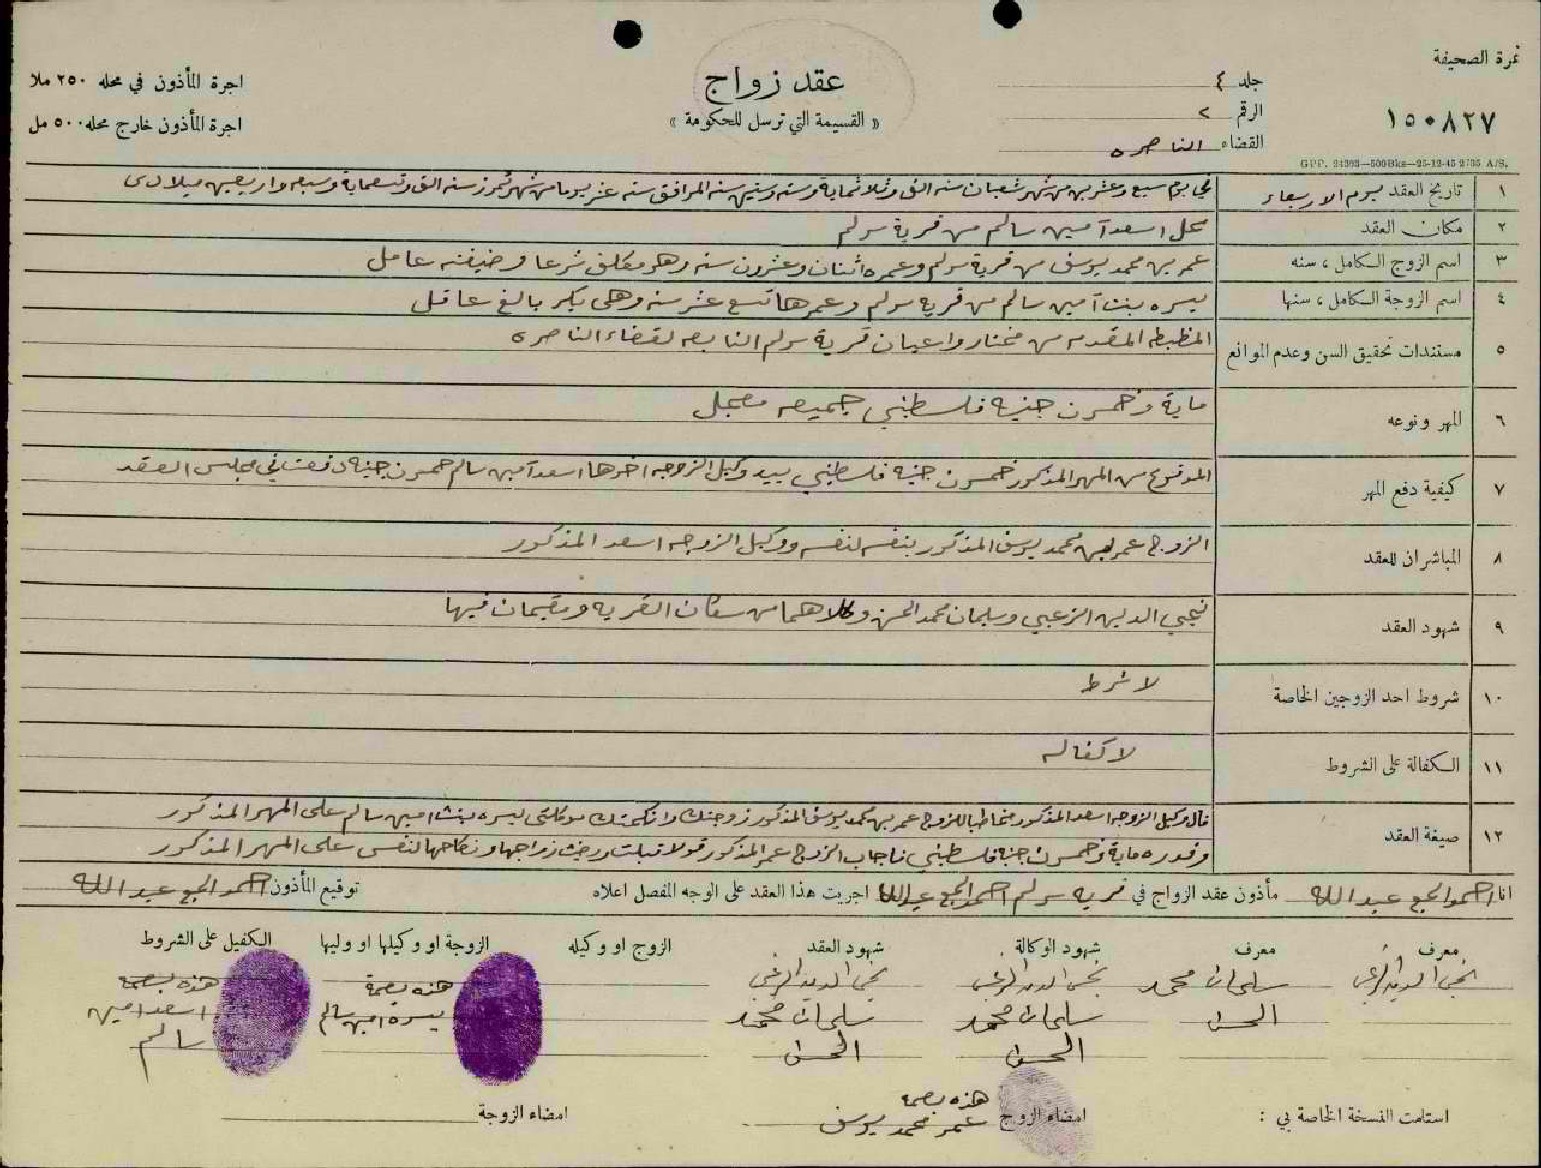 نمرة الصحيفة
١٥٠٨٢٧
G.P.P. 24303—500 Bks—25-12-45 2735 A/S.
جلد ٤
الرقم ٢
القضاء الناصره
عقد زواج
« القسيمة التي ترسل للحكومة »
اجرة المأذون في محله ٢٥٠ ملا
اجرة المأذون خارج محله ٥٠٠ مل
١ تاريخ العقد يوم الاربعاء في يوم سبع وعشرين من شهر شعبان سنه الف وثلاثماية وسته وستين سنه الموافق سته عشر يوما من شهر تموز سنه الف وتسعماية وسبعه واربعين ميلادى
٢ مكان العقد محل اسعد آمين سالم من قرية سولم
٣ اسم الزوج الكامل ، سنه عمر بن محمد يوسف من قرية سولم وعمره اثنان وعشرون سنه وهو مكلف شرعا وضيفته عامل
٤ اسم الزوجة الكامل ، سنها يسره بنت آمين سالم من قريه سولم وعمرها تسع عشر سنه وهى بكر بالغ عاقل
٥ مستندات تحقيق السن وعدم الموانع المظبطه المقدمه من مختار واعيان قرية سولم التابعه لقضاء الناصره
٦ المهر ونوعه ماية وخمسون جنيه فلسطيني جميعه معجل
٧ كيفية دفع المهر المدفوع من المهر المذكور خمسون جنيه فلسطيني بيد وكيل الزوجه اخوها اسعد آمين سالم خمسون جنيه دفعت في مجلس العقد
٨ المباشران للعقد الزوج عمر بن محمد يوسف المذكور بنفسه لنفسه ووكيل الزوجه اسعد المذكور
٩ شهود العقد نجي الدين الزعبي وسليمان محمد الحسن وكلاهما من سكان القريه ومقيمان فيها
١٠ شروط احد الزوجين الخاصة لا شرط
١١ الكفالة على الشروط لا كفاله
١٢ صيغة العقد قال وكيل الزوجه اسعد المذكور مخاطبا للزوج عمر بن محمد يوسف المذكور زوجتك وانكحتك موكلتى يسره بنت امين سالم على المهر المذكور
وقدره ماية وخمسون جنيه فلسطيني فاجاب الزوج عمر المذكور قولا قبلت ورضيت زواجها ونكاحها لنفسى على المهر المذكور
انا احمد الحج عبد الله مأذون عقد الزواج في قريه سولم احمد الحج عبدالله اجريت هذا العقد على الوجه المفصل اعلاه توقيع المأذون احمد الحج عبد الله
معرف معرف شهود الوكالة شهود العقد الزوج او وكيله الزوجة او وكيلها او وليها الكفيل على الشروط
نجي الدين الزعبي سليمان محمد نجي الدين الزعبي نجي الدين الزعبي هذه بصمة هذه بصمة
الحسن سليمان محمد سليمان محمد يسره امين سالم اسعد امين
الحسن الحسن سالم
استلمت النسخة الخاصة بي : امضاء الزوج هذه بصمة امضاء الزوجة
عمر محمد يوسف